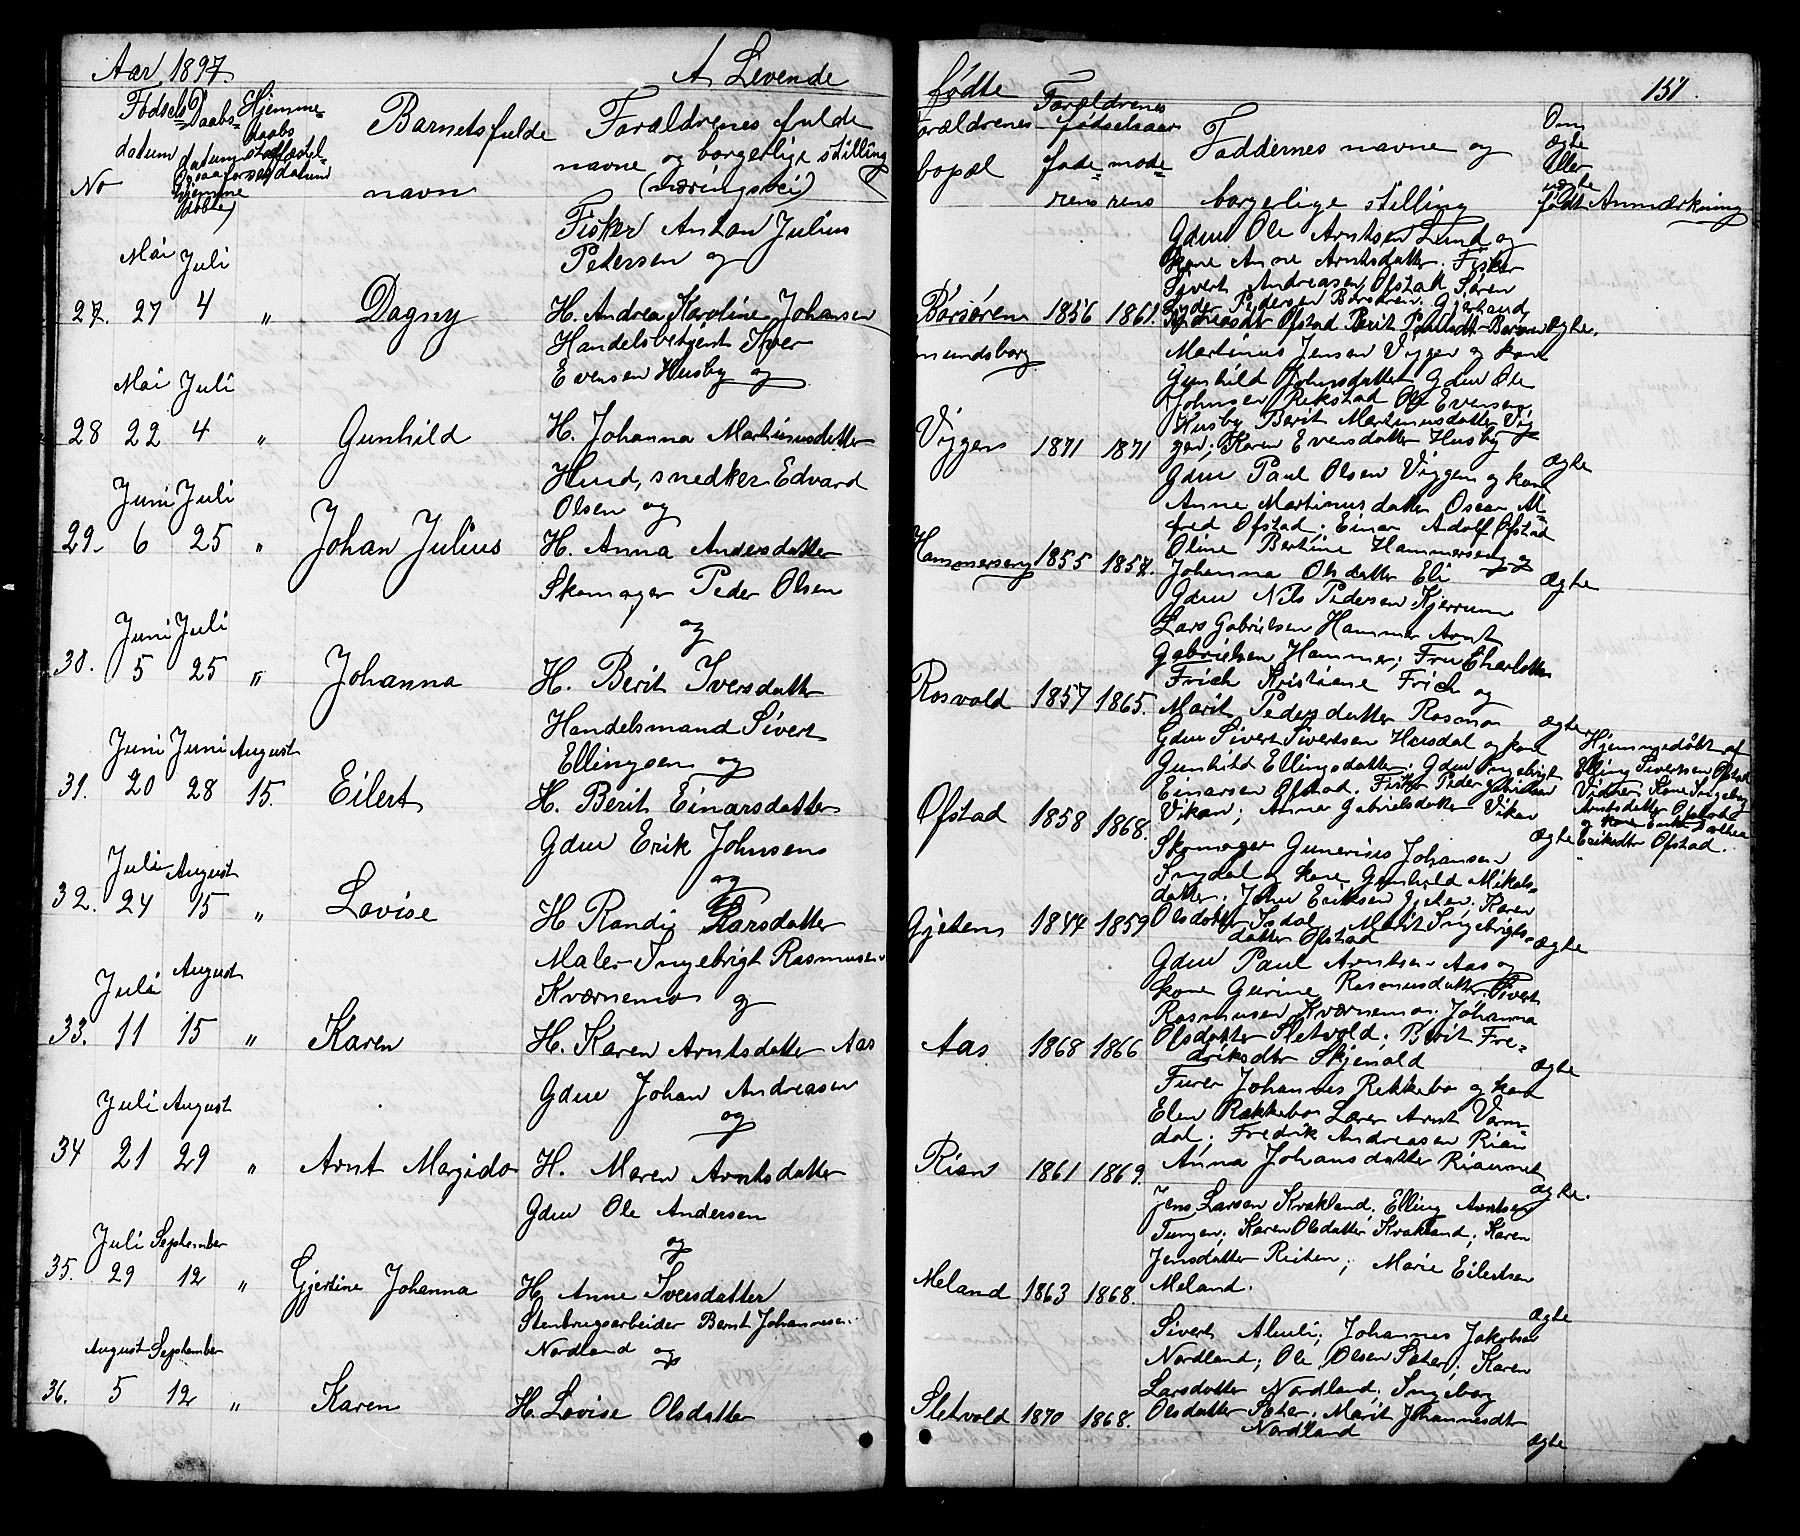 Aar 1897. A Levende
No
Fødsels datum
Daabs datum
Hjemme daabs stadfæstel datum
Barnets fulde navn
Forældrenes fulde navne og borgerlige stilling (næringsvei)
Mai Juli
27. 27 4 " Dagny
Fisker Anton Julius
Petersen og
H. Andrea Karoline Johansen
Mai Juli
28 22 4 " Gunhild
Handelsbetjent Iver
Evensen Husby og
H. Johanna Martinusdatter
Juni Juli
29. 6 25 " Johan Julius
Hmd, snedker Edvard
Olsen og
H. Anna Andersdatter
Juni Juli
30. 5 25 " Johanna
Skomager Peder Olsen
og
H. Berit Iversdatter
Juni Juni August
31. 20 28 15. Eilert
Handelsmand Sivert
Ellingsen og
H. Berit Einarsdatter
Juli August
32. 24 15 " Lovise
Gdm Erik Johnsen
og
H Randi Larsdatter
Juli August
33. 11 15 " Karen
Maler Ingebrigt Rasmusen
Kværnemo og
H. Karen Arntsdatter Aas
Juli August
34 21 29 " Arnt Margido
Gdm Johan Andreasen
og
H. Maren Arntsdatter
Juli September
35. 29 12 " Gjertine Johanna
Gdm Ole Andersen
og
H. Anne Iversdatter
August September
36. 5 12 " Karen
Stenbrugsarbeider Bernt Johannesen
Nordland og
H. Lovise Olsdatter
fødte 151.
Forældrenes bopæl
Forældrenes fødselsaar
faderens moderens
Faddernes navne og
borgerlige stilling
Om ægte eller uægte født
Anmærkning
Børsøren 1856 1861.
Gdm Ole Arntsen Lund og
kone Anne Arntsdatter. Fisker
Sivert Andreasen Ofstad Søren
Pedersen Børsøren.
Ofstad Berit
ægte.
Viggen 1871 1871
Martinus Jensen Viggen og kone
Gunhild Johnsdatter, Gdm Ole
Johnsen Rekstad Ole Evensen
Husby Berit Martinusdatter Vig
gen; Karen Evensdatter Husby
Ægte
Hammerseng 1855 1857.
Gdm Paul Olsen Viggen og kone
Anne Martinusdatter Oscar Al
fred Ofstad; Einar Adolf Ofstad
Oline Bertine Hammerseng og
Johanna Olsdatter Eli
Ægte
Rosvold 1857 1865.
Gdm Nils Pedersen Kjerrum
Lars Gabrielsen Hammer Arnt
Gabrielsen Hammer; Fru Charlotte
Frich Kristiane Frich og
Marit Pedersdatter Rosmo
ægte
Ofstad 1858 1868.
Gdm Sivert Sivertsen Harsdal og kone
Gunhild Ellingsdatter; Gdm Ingebrigt
Einarsen Ofstad. Fisker Peder
Vikan; Anne Gabrielsdatter Vikan
ægte
Hjemmedøbt af
Elling Sivertsen Ofstad
Vidner, Kone Ingeborg
Arntsdatter Ofstad
Eriksdtr Ofstad.
Gjeten 1844 1859
Skomager Gunerius Johansen
Snydal og kone Gunhild Mikals-
datter; John Eriksen Gjeten. Karen
Olsdatter Marit Ingebrigts-
datter Ofstad
ægte
Aas 1868 1866
Gdm Paul Arntsen Aas og
kone Gurine Rasmusdatter. Sivert
Rasmusen Kværnemo. Johanna
Olsdatter Sletvold. Berit Fre-
driksdtr Skjenald
ægte
Rian 1861 1869.
Furer Johannes Rekkebo og kone
Elen Rekkebo Lærer Arnt Varm-
dal; Fredrik Andreasen Rian
Anna Johansdatter Rianmet
ægte.
Meland 1863 1868.
Jens Larsen Krokland. Elling Arntsen
Tungen; Karen Olsdatter Krokland; Karen
Jensdatter Reiten; Marie Eilertsen
Meland.
ægte
Sletvold 1870 1868.
Sivert Almli; Johannes Jakobsen
Nordland; Ole Olsen Sæter; Karen
Larsdatter Nordland; Ingeborg
Olsdatter Sæter. Marit Johannesdtr
Nordland
ægte